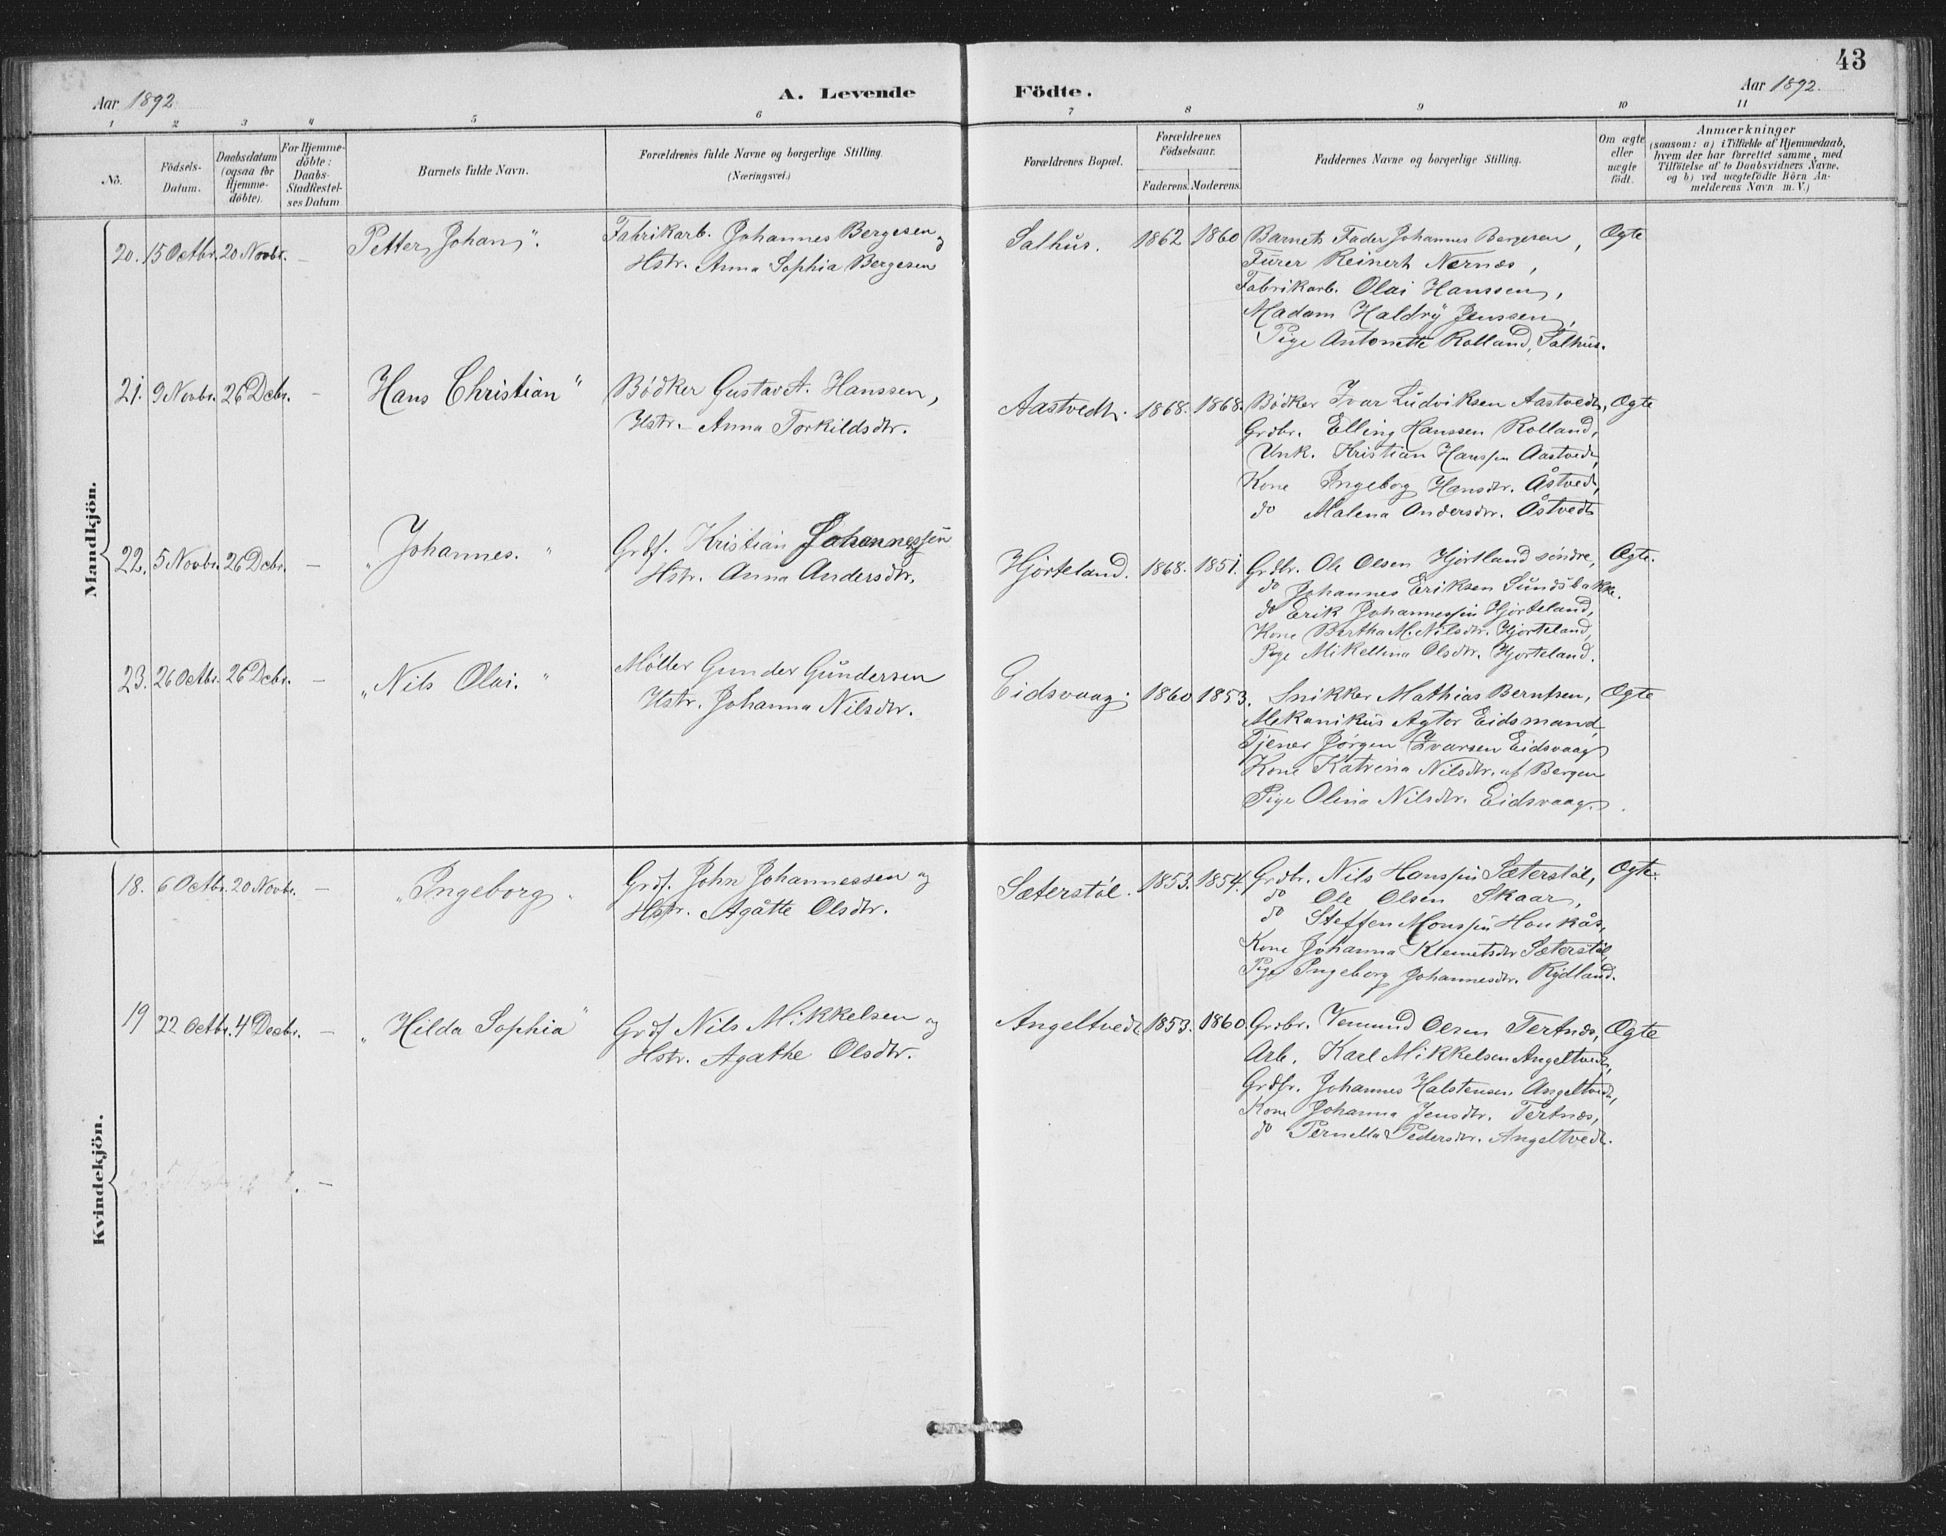 43
Aar 1892
A. Levende Födte.
Aar 1892.
1 2 3 4 5 6 7 8 9 10 11
No.
Födsels-
Datum.
Daabsdatum
(ogsaa for
Hjemme-
döbte).
For Hjemme-
döbte:
Daabs-
Stadfæstel-
ses Datum
Barnets fulde Navn.
Forældrenes fulde Navne og borgerlige Stilling.
(Næringsvei.)
Forældrenes Bopæl.
Forældrenes
Födselsaar.
Faderens. Moderens.
Faddernes Navne og borgerlige Stilling.
Om ægte
eller
uægte
født.
Anmærkninger
(saasom: a) i Tilfælde af Hjemmedaab,
hvem der har forrettet samme, med
Tilföielse af to Daabsvidners Navne,
og b) ved uægtefödte Börn An-
melderens Navn m. V.)
Mandkjön.
20. 15 Octbr. 20 Novbr. –
Petter Johan".
Fabrikarb. Johannes Bergesen og
Hstr. Anna Sophia Bergesen
Salhus. 1862 1860
Barnets Fader Johannes Bergesen,
Fürer Reinert Nernæs,
Fabrikarb. Olai Hanssen,
Madam Haldry Jenssen,
Pige Antonette Rolland, Salhus.
Ægte
21. 9 Novbr. 26 Dcbr. –
Hans Christian"
Bödker Gustav A. Hanssen,
Hstr. Anna Torkildsdtr.
Aastvedt. 1868. 1868.
Bödker Ivar Ludviksen Aastvedt,
Grdbr. Elling Hanssen Rolland,
Unk. Kristian Hanssen Aastvedt,
Kone Ingeborg Hansdtr. Åstvedt,
do Malena Andersdtr. Åstvedt
Ægte
22. 5 Novbr. 26 Dcbr. –
"Johannes. "
Grdf. Kristian Johannessen
Hstr. Anna Andersdtr.
Hjorteland. 1868. 1851.
Grdbr. Ole Olsen Hjortland söndre,
do Johannes Eriksen Sundsbakke.
do Erik Johannessen Hjorteland,
Kone Bertha M. Nilsdtr. Hjorteland,
Pige Mikellina Olsdtr. Hjorteland.
Ægte.
23. 26 Octbr. 26 Dcbr. –
"Nils Olai. "
Møller Gunder Gundersen
Hstr. Johanna Nilsdtr.
Eidsvaag. 1860 1853.
Snikker Mathias Berntsen,
Mekanikus Agtor Eidsmand,
Tjener Jörgen Ivarsen Eidsvaag
Kone Katrina Nilsdtr. af Bergen
Pige Olina Nilsdtr. Eidsvaag.
Ægte
Kvindekjön.
18. 6 Octbr. 20 Novbr. –
"Ingeborg.
Grdf. John Johannessen og
Hstr. Agåtte Olsdtr.
Sæterstöl. 1853. 1854.
Grdbr. Nils Hanssen Sæterstöl,
do Ole Olsen Skaar,
do Steffen Monssen Haukås,
Kone Johanna Klemetsdtr Sæterstöl,
Pige Ingeborg Johannesdtr. Rydland.
Ægte.
19 22 Octbr. 4 Decbr. –
"Hilda Sophia"
Grdf Nils Mikkelsen og
Hstr. Agathe Olsdtr.
Angeltvedt 1853. 1860.
Grdbr. Vemund Olsen Tertnæs,
Arb. Karl Mikkelsen Angeltvedt,
Grdbr. Johannes Halstensen Angeltvedt,
Kone Johanna Jensdtr. Tertnæs,
do Pernella Pedersdtr. Angeltvedt.
Ægte